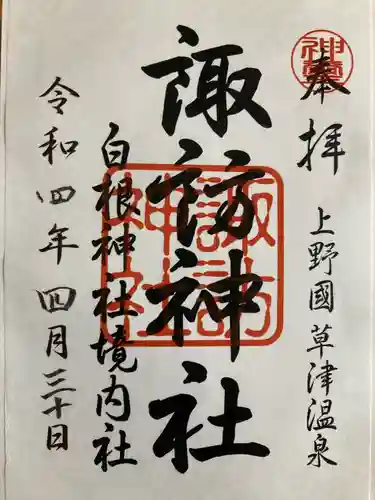 奉拝
上野國草津温泉
諏訪神社
諏訪神社
白根神社境内社
令和四年四月三十日